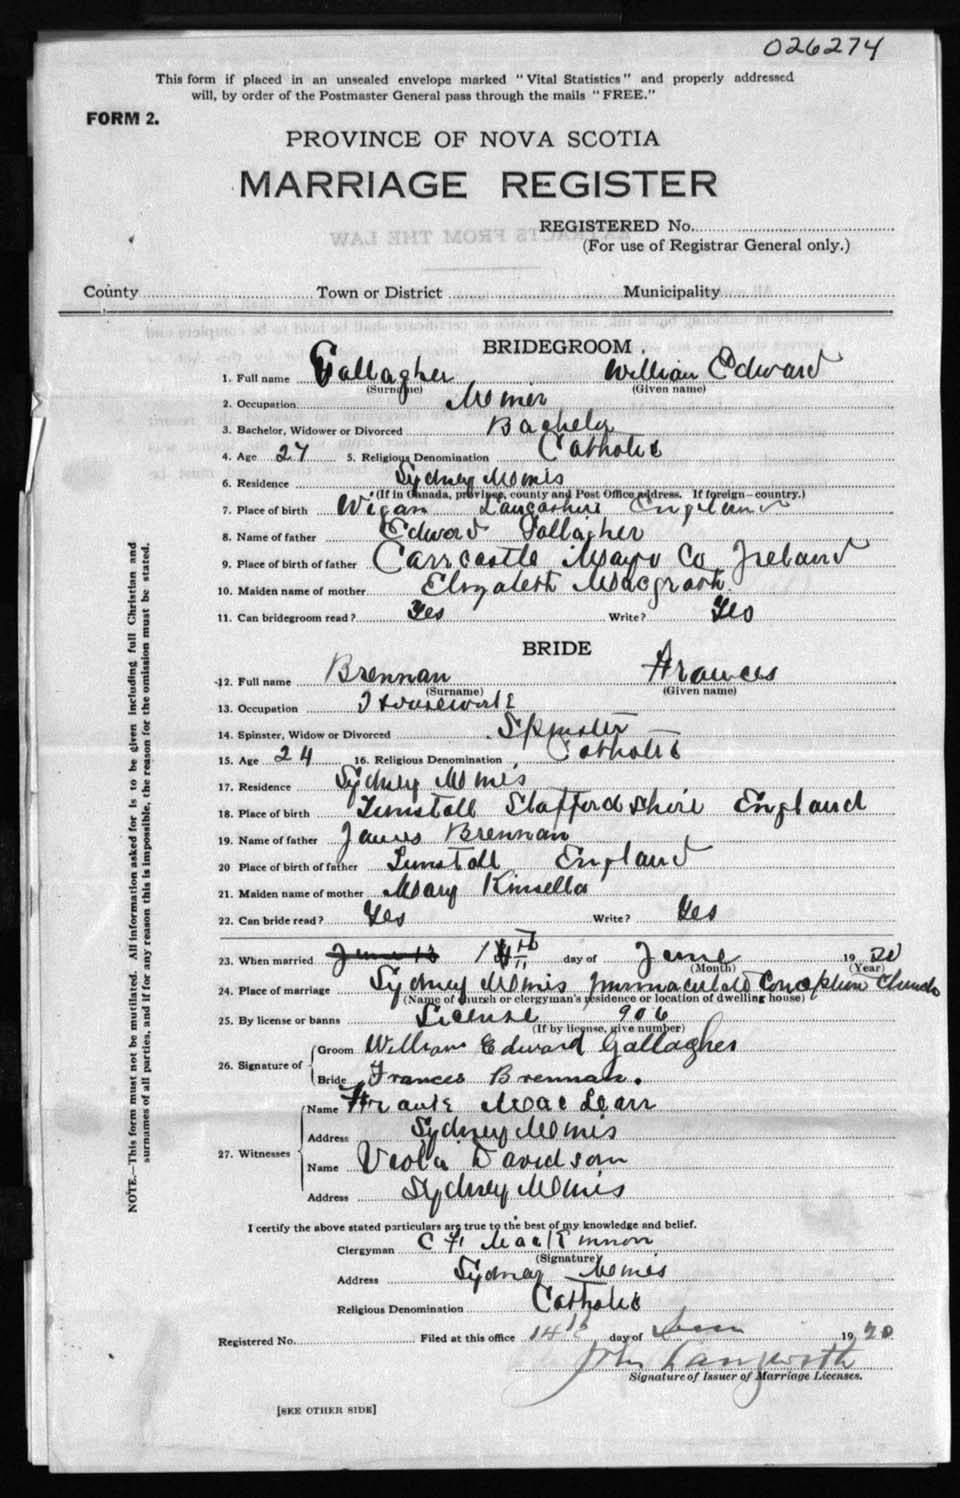 026274
This form if placed in an unsealed envelope marked "Vital Statistics" and properly addressed
will, by order of the Postmaster General pass through the mails "FREE."
FORM 2.
PROVINCE OF NOVA SCOTIA
MARRIAGE REGISTER
REGISTERED No.
(For use of Registrar General only.)
County Town or District Municipality
BRIDEGROOM.
1. Full name Gallagher William Edward
(Surname) (Given name)
2. Occupation Miner
3. Bachelor, Widower or Divorced Bachelor
4. Age 27 5. Religious Denomination Catholic
6. Residence Sydney Mines
(If in Canada, province, county and Post Office address. If foreign—country.)
7. Place of birth Wigan Lancashire England
8. Name of father Edward Gallagher
9. Place of birth of father Carrcastle Mayo Co Ireland
10. Maiden name of mother Elizabeth Macgrath
11. Can bridegroom read? Yes Write? Yes
BRIDE
12. Full name Brennan Frances
(Surname) (Given name)
13. Occupation Housework
14. Spinster, Widow or Divorced Spinster
15. Age 24 16. Religious Denomination Catholic
17. Residence Sydney Mines
18. Place of birth Tunstall Staffordshire England
19. Name of father James Brennan
20 Place of birth of father Tunstall England
21. Maiden name of mother Mary Kinsella
22. Can bride read? Yes Write? Yes
23. When married June 13 14th day of June 1920
(Month) (Year)
24. Place of marriage Sydney Mines Immaculate Conception Church
(Name of church or clergyman's residence or location of dwelling house)
25. By license or banns License 906
(If by license, give number)
26. Signature of
Groom William Edward Gallagher
Bride Frances Brennan.
27. Witnesses
Name Frank MacLean
Address Sydney Mines
Name Viola Davidson
Address Sydney Mines
I certify the above stated particulars are true to the best of my knowledge and belief.
Clergyman C F MacKinnon
(Signature)
Address Sydney Mines
Religious Denomination Catholic
Registered No. Filed at this office 14th day of June 1920
John Langworth
Signature of Issuer of Marriage Licenses.
[SEE OTHER SIDE]
NOTE.—This form must not be mutilated. All information asked for is to be given including full Christian and
surnames of all parties, and if for any reason this is impossible, the reason for the omission must be stated.